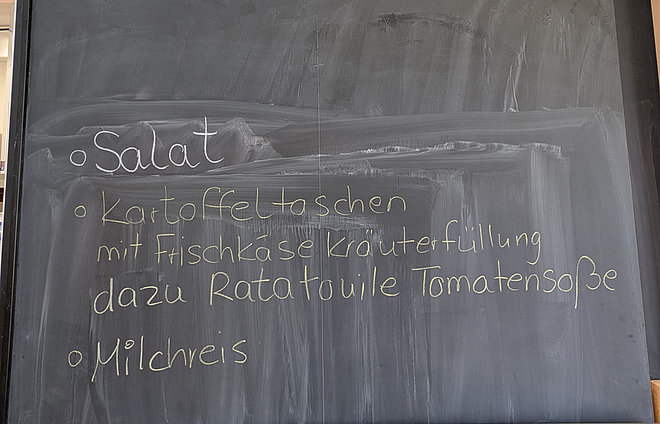 ○ Salat
○ Kartoffeltaschen
mit Frischkäse Kräuterfüllung
dazu Ratatouile Tomatensoße
○ Milchreis